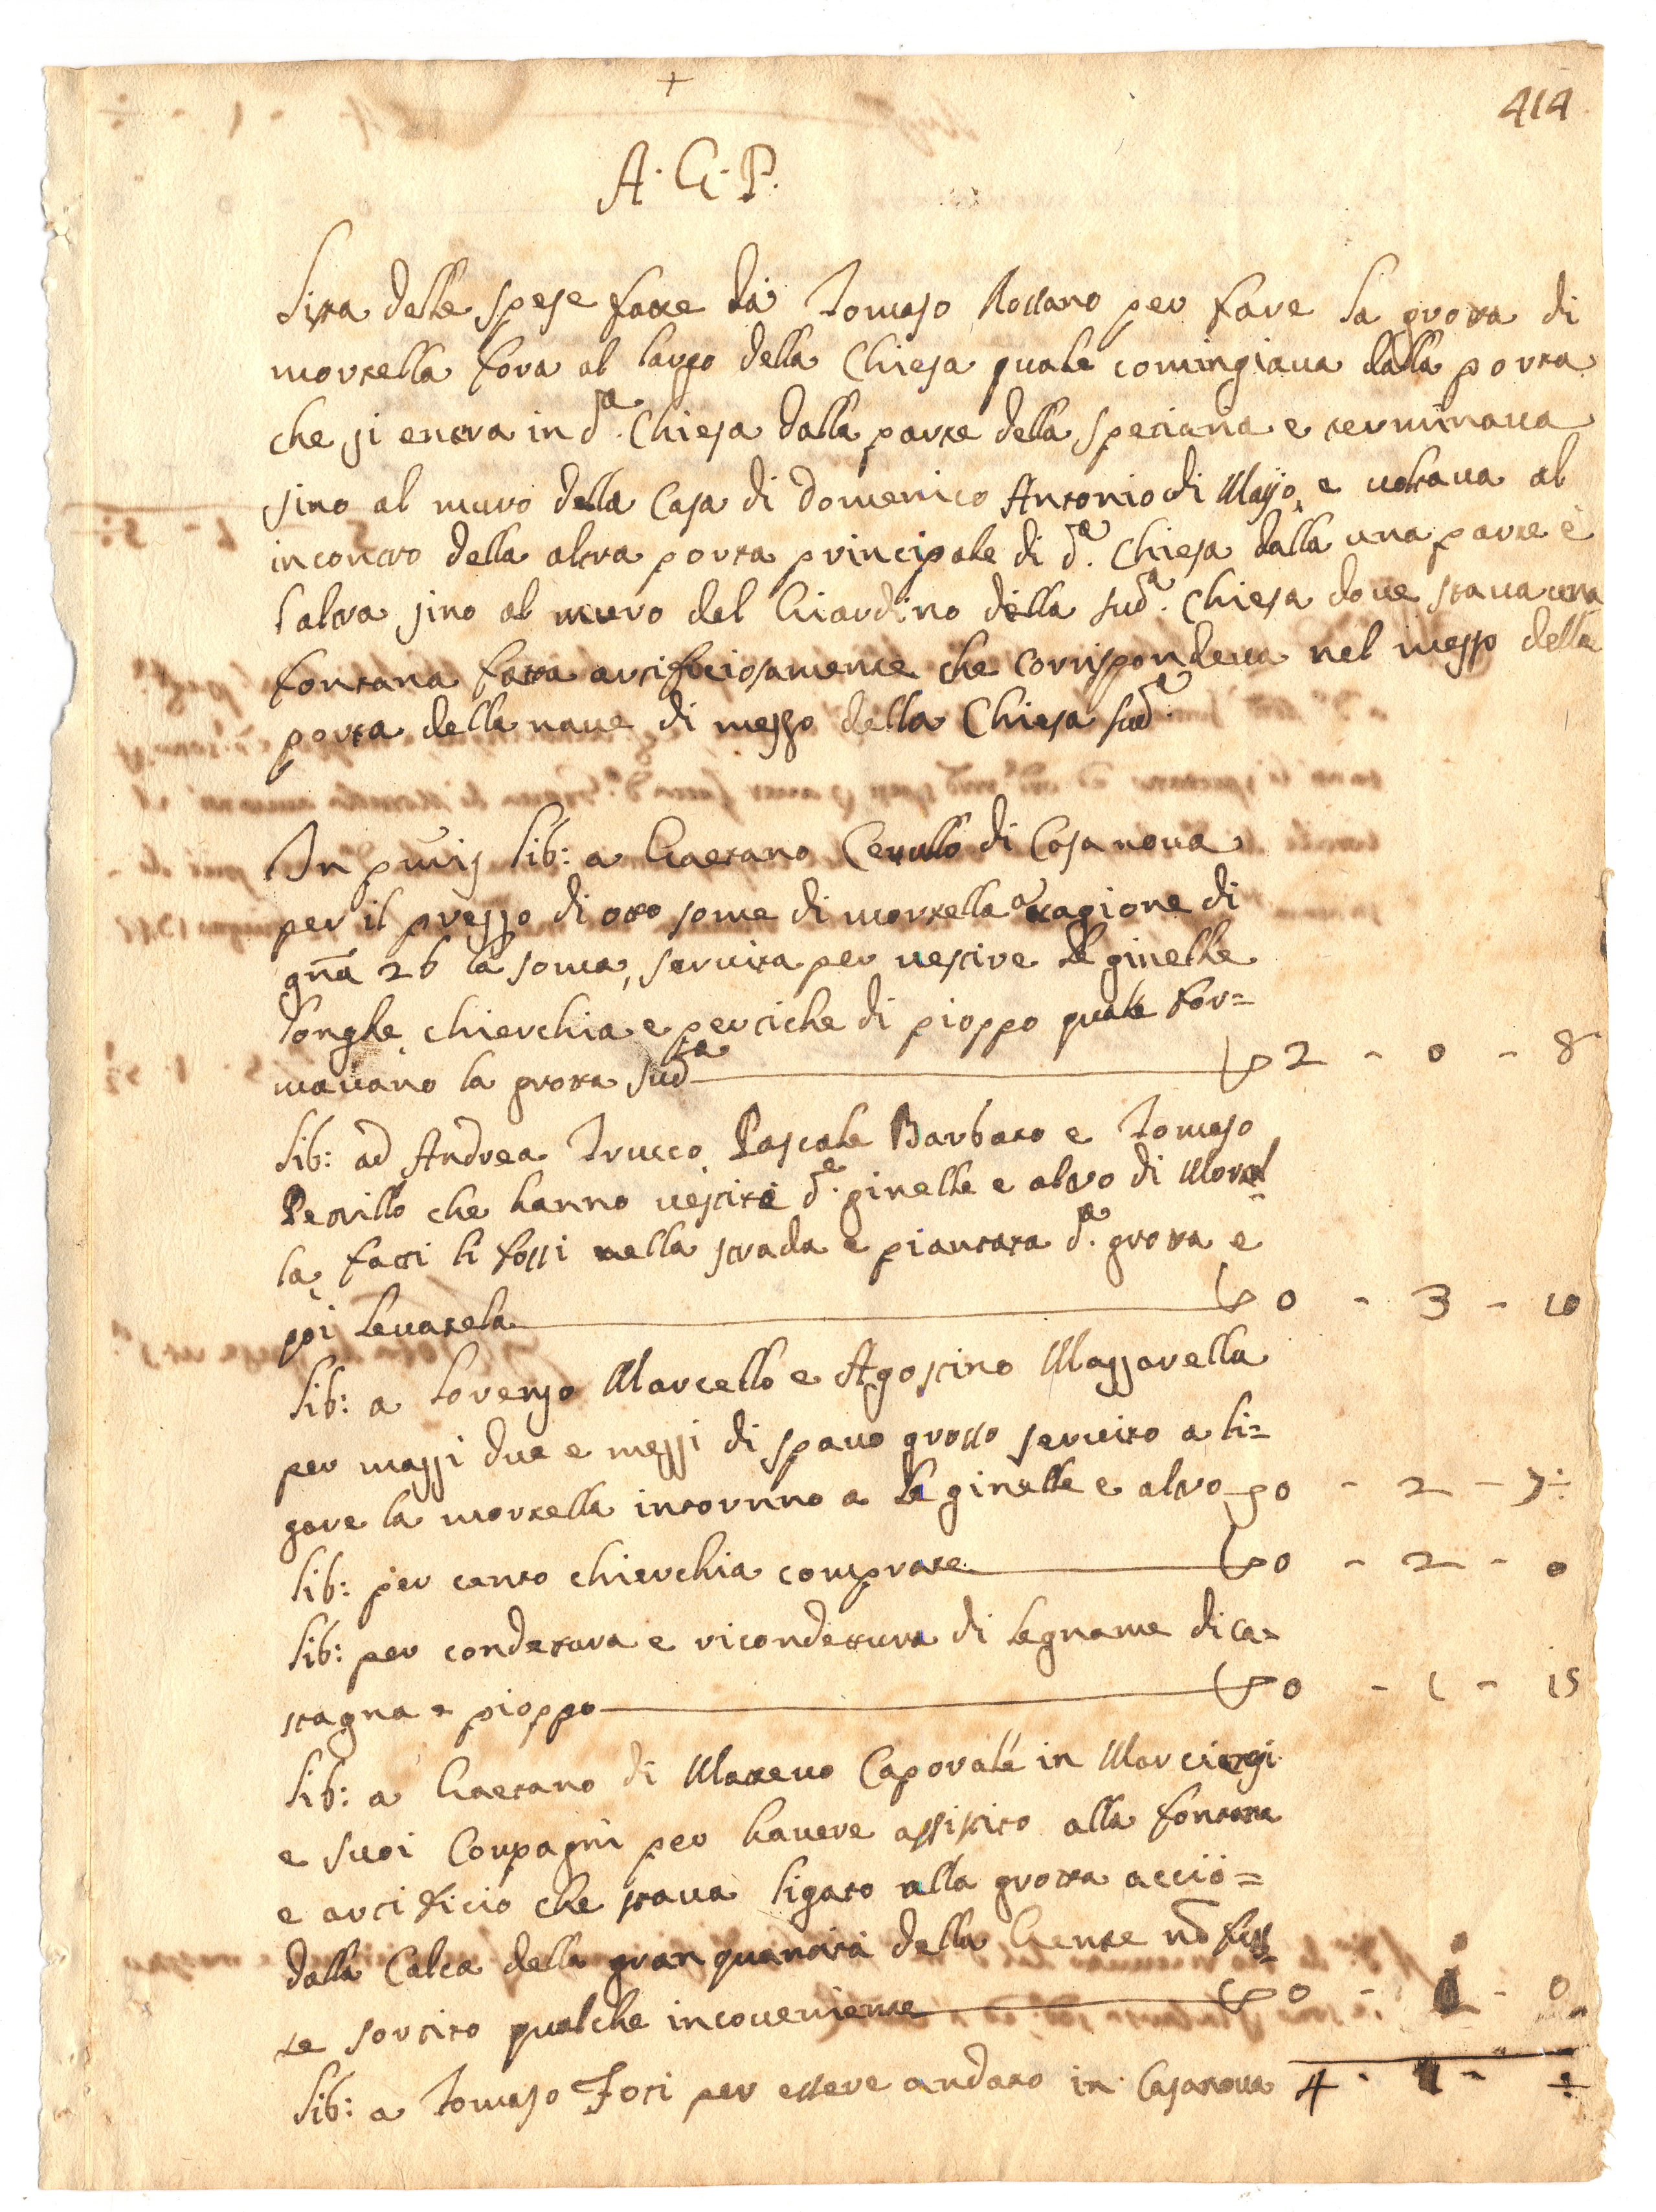 +
414
A. G. P.
Lista delle spese fatte da Tomaso Rossano per fare la grotta di
mortella fora al largo della Chiesa quale comingiava dalla porta
che si entra in d.ta Chiesa dalla parte della spetiaria e terminava
sino al muro della Casa di Domenico Antonio di Majo, e voltava al
incontro della altra porta principale di d.a Chiesa dalla una parte e
l'altra sino al muro del Giardino della sud.a Chiesa dove stava una
fontana fatta artificiosamente che corrispondeva nel mezzo della
porta della nave di mezzo della Chiesa sud.a
In p̃mis lib: a Gaetano Cerullo di Casanova
per il prezzo di otto some di mortella a ragione di
gñā 26 la soma, servita per vestire le ginelle
longhe chierchia e pertiche di pioppo quale for=
mavano la grotta sud.ta 2 - 0 - 8
lib: ad Andrea Trucco, Pascale Barbato e Tomaso
Petrillo che hanno vestite d.e ginelle e altro di Mortel=
la, fatti li fossi nella strada e piantata d.a grotta e
poi levatela 0 - 3 - 10
lib: a Lorenzo Marcello e Agostino Mazzarella
per mazzi due e mezzi di spavo grosso servito a li=
gare la mortella intorno a le ginelle e altro 0 - 2 - 7:
lib: per cento chierchia comprate 0 - 2 - 0
lib: per condetura e ricondettura di legname di ca=
stagna e pioppo 0 - 1 - 15
lib: a Gaetano di Matteo Caporale in
e suoi Compagni per havere assistito alla fontana
e artificio che stava ligato alla grotta acciò=
dalla Calca della gran quantità della Gente nō fus=
se sortito qualche incoveniente 0 - - 0
lib: a Tomaso Foti per essere andato in Casanova 4 -